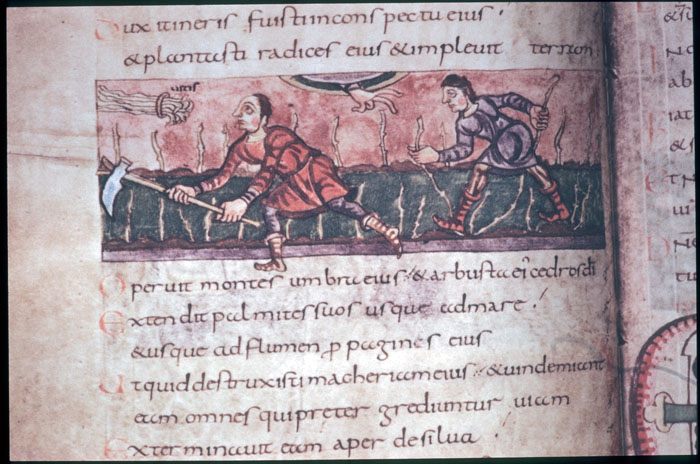 Dux itineris fuisti inconspectu eius·
&plantasti radices eius &impleuit terram
Operuit montes umbra eius·&arbusta ei' cedros di
Extendit palmites suos usque admare·
&usque ad flumen ꝓpagines eius
Utquid destruxisti macheriam eius·&uindemiant
eam omnes qui preter grediuntur uiam
Exterminauit eam aper desilua·